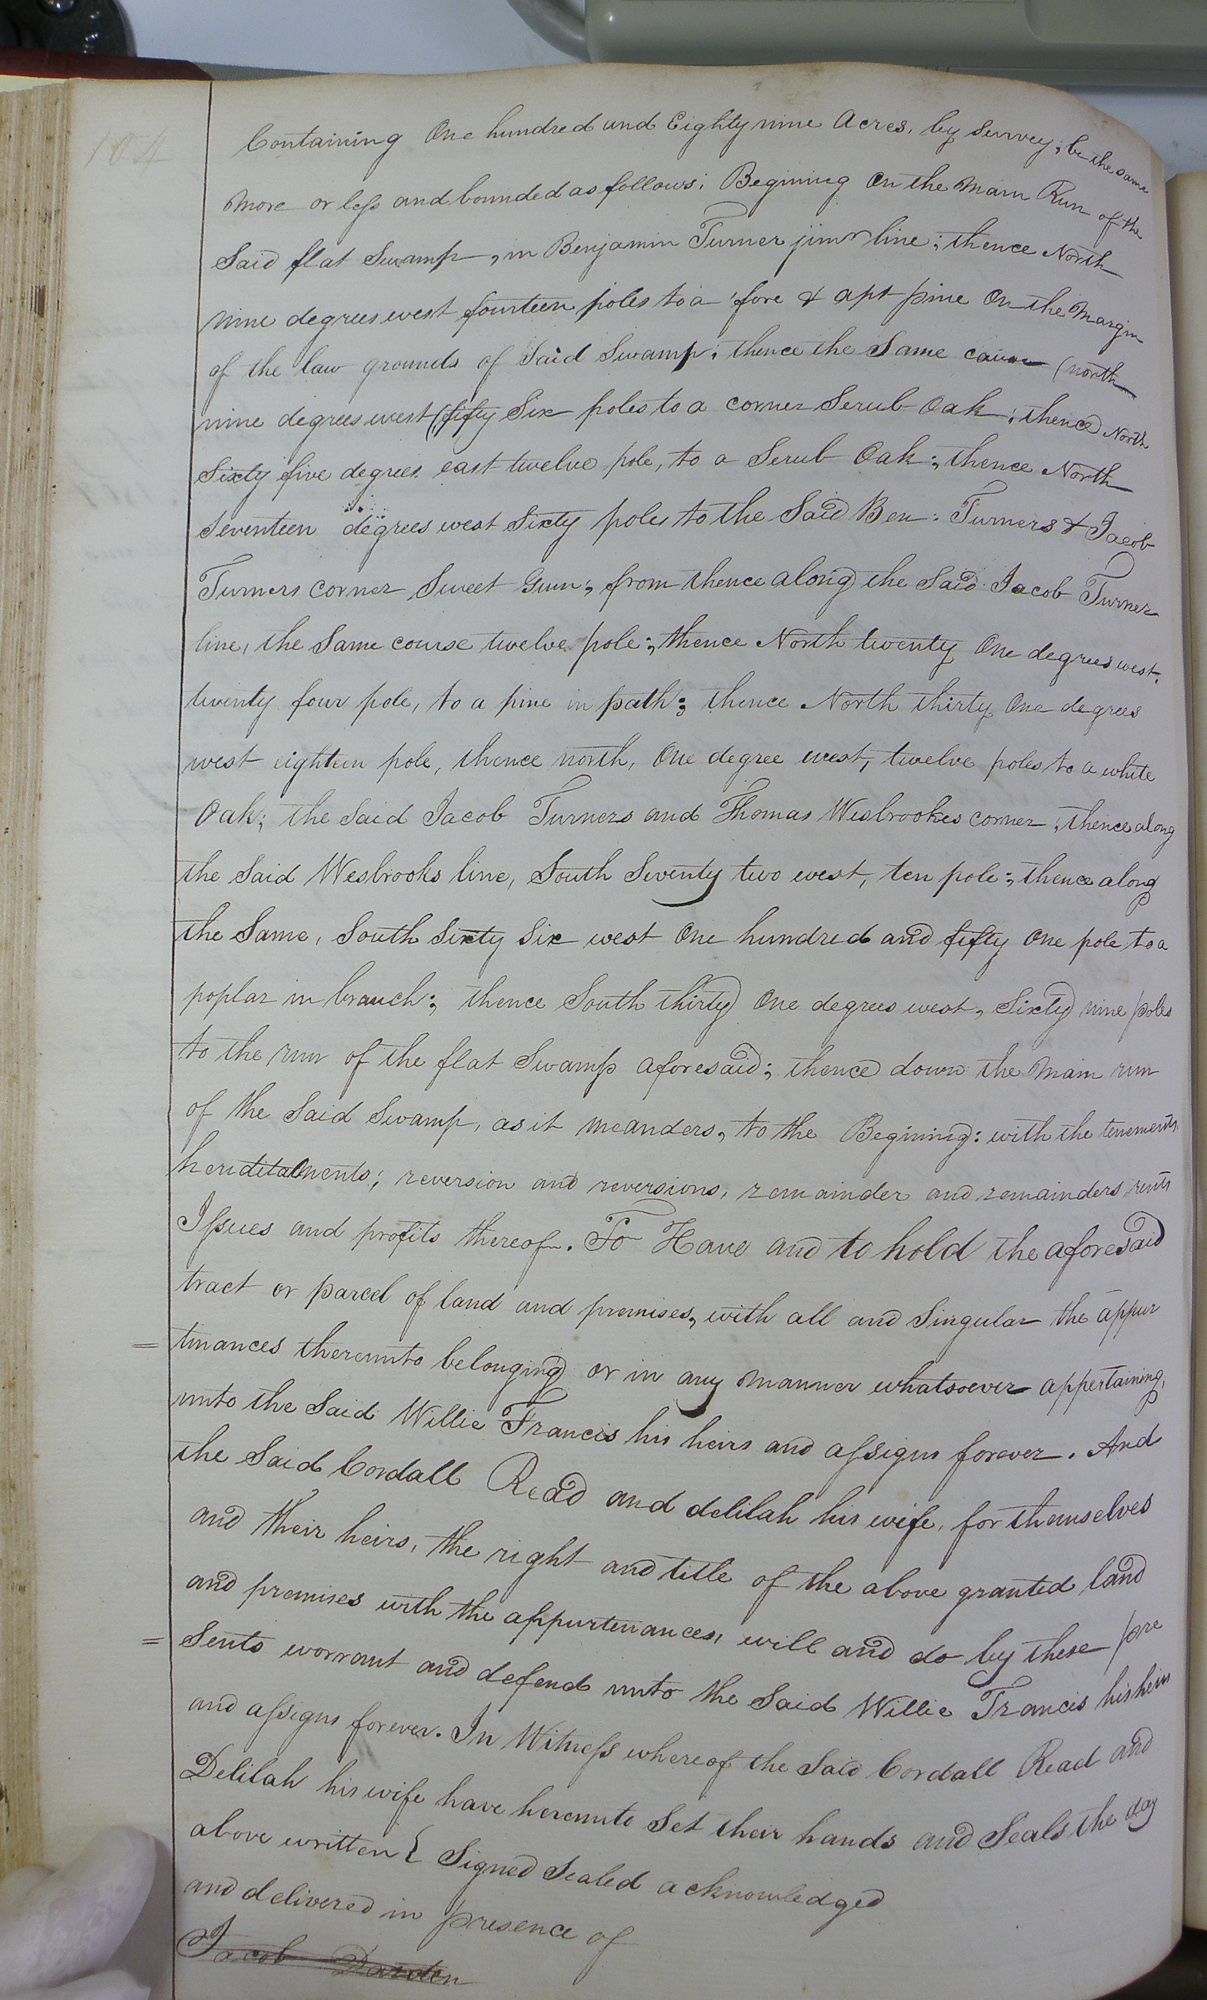 104
Containing One hundred and Eighty nine Acres, by Survey, be the same
more or less and bounded as follows; Begining On the Main Run of the
Said flat Swamp, in Benjamin Turner junr line; thence North
nine degrees west fourteen poles to a fore & apt pine On the Margin
of the law grounds of Said Swamp; thence the Same (north
nine degrees west (fifty Six poles to a corner Scrub Oak; thence North
Sixty five degrees east twelve pole, to a Scrub Oak; thence North
Seventeen degrees west Sixty poles to the Said Ben: Turners & Jacob
Turners corner Sweet Gum; from thence along the Said Jacob Turner
line, the Same course twelve pole; thence North twenty One degrees west.
twenty four pole, to a pine in path; thence North thirty One degrees
west eighteen pole, thence north, One degree west, twelve poles to a white
Oak; the Said Jacob Turners and Thomas Wesbrookes corner; thence along
the Said Wesbrooks line, South Seventy two west, ten pole; thence along
the Same, South Sixty Six west One hundred and fifty One pole to a
poplar in branch; thence South thirty One degrees west, Sixty nine poles
to the run of the flat Swamp aforesaid; thence down the Main run
of the Said Swamp, as it meanders, to the Begining: with the tenements,
herditaments; reversion and reversions, remainder and remainders rents
Issues and profits thereof. To Have and to hold the aforesaid
tract or parcel of land and premises, with all and Singular the appur
= tinances thereunto belonging or in any manner whatsoever appertaining,
unto the Said Willie Francis his heirs and assigns forever. And
the Said Cordall Read and delilah his wife, for themselves
and their heirs, the right and title of the above granted land
and premises with the appurtinances, will and do by these pre
= Sents worrant and defend unto the Said Willie Francis his heirs
and assigns forever. In Witness whereof the Said Cordall Read and
Delilah his wife have hereunto Set their hands and Seals the day
above written { Signed Sealed acknowledged
and delivered in presence of
Jacob Darden